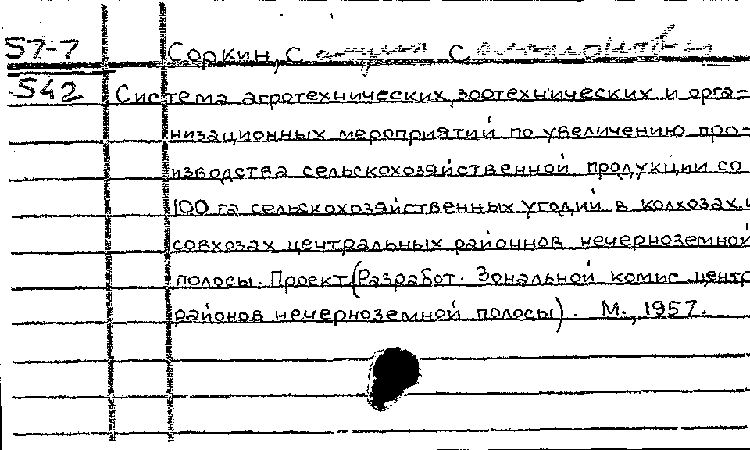 57-7 Соркин, С С
542 Система агротехнических, зоотехнических и орга-
низационных мероприятий по увеличению про-
изводства сельскохозяйственной продукции со
100 га сельскохозяйственных угодий в колхозах и
совхозах центральных районнов нечерноземной
полосы. Проект (Разработ. Зональной комис центр
районов нечерноземной полосы). М., 1957.